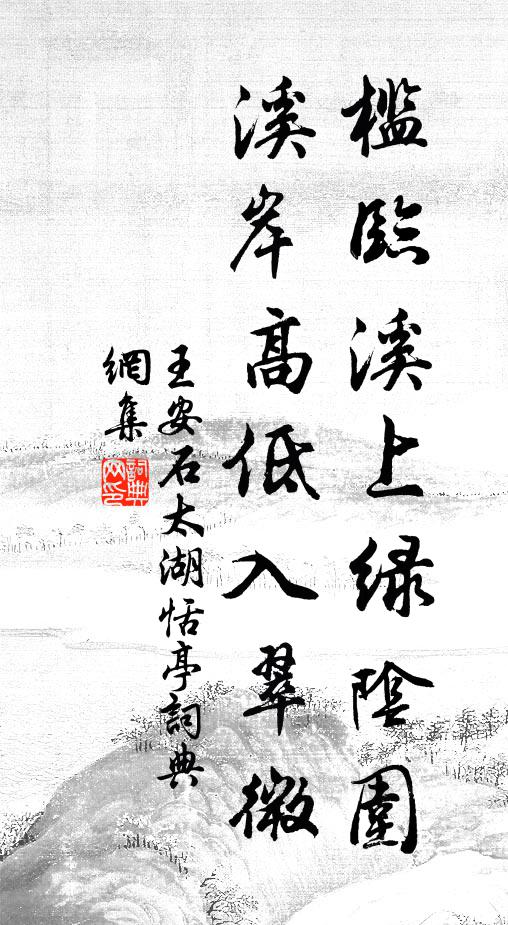 檻臨溪上綠陰圍
溪岸高低入翠微
王安石太湖恬亭詞典
網集
詞典網印